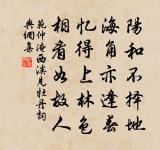 陽和不擇地
海角亦逢春
憶得上林色
相看如故人
范仲淹西溪見牡丹詞
集